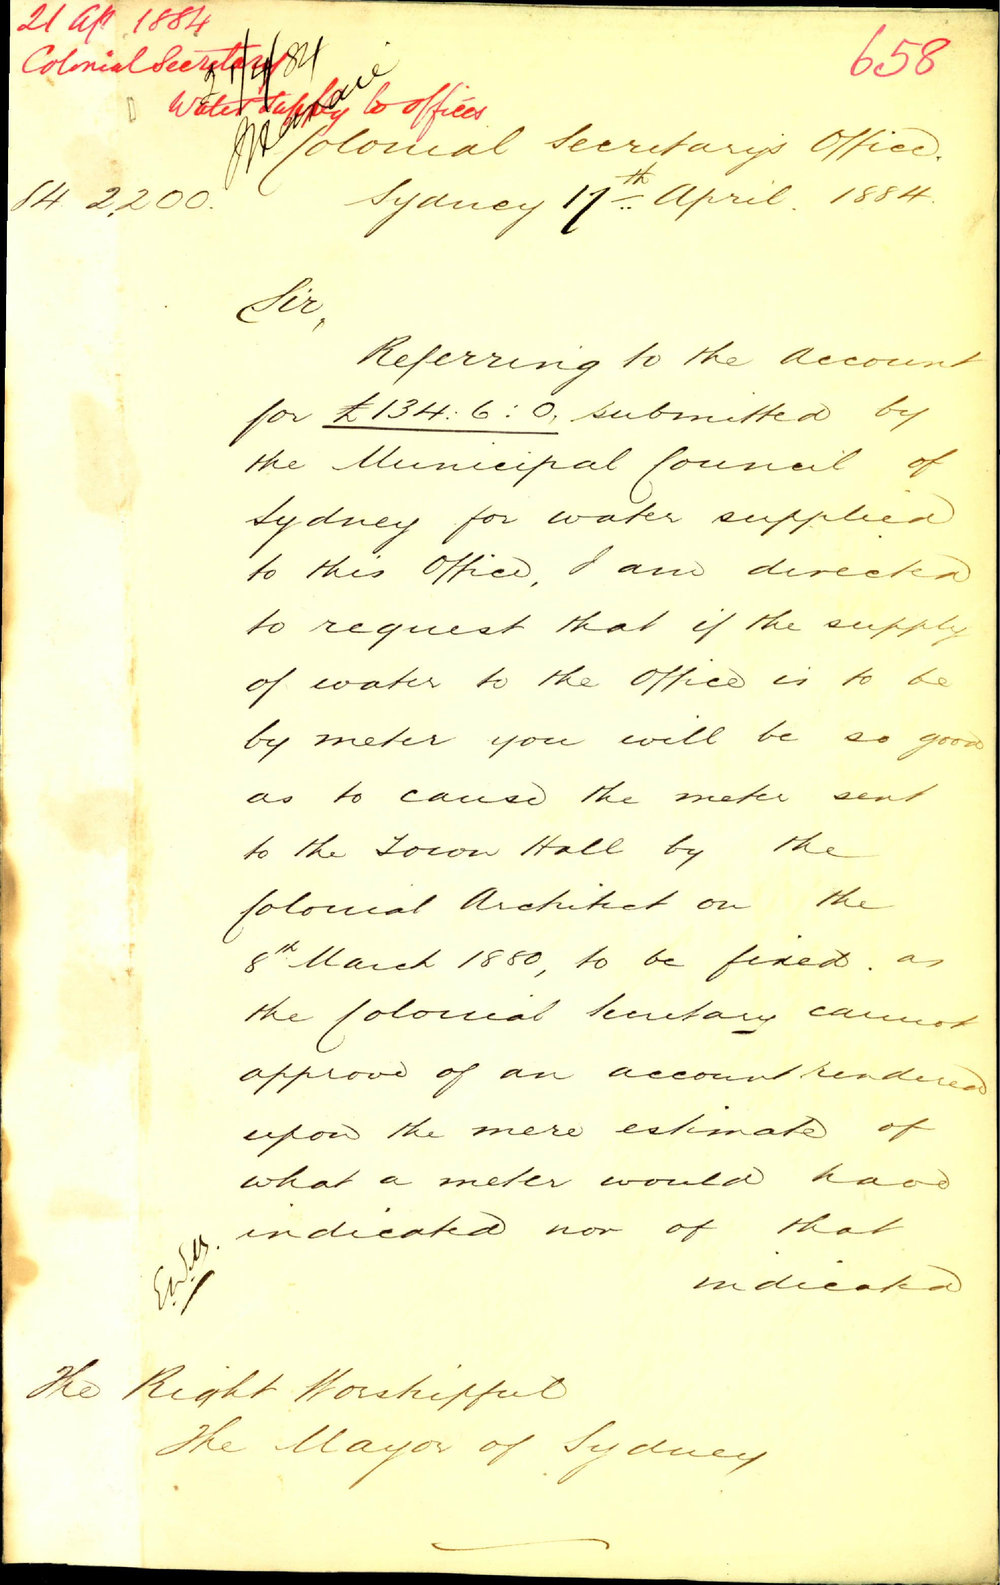 21 Ap 1884
Colonial Secretary
Water Supply to offices
21/4/84
658
Colonial Secretary's Office.
84. 2,200.
Sydney 17th April. 1884.
Sir,
Referring to the account
for £134: 6: 0, submitted by
the Municipal Council of
Sydney for water supplied
to this Office, I am directed
to request that if the supply
of water to the Office is to be
by meter you will be so good
as to cause the meter sent
to the Town Hall by the
Colonial Architect on the
8th March 1880, to be fixed. as
the Colonial Secretary cannot
approve of an account rendered
upon the mere estimate of
what a meter would have
indicated nor of that
indicated
The Right Worshipful
The Mayor of Sydney